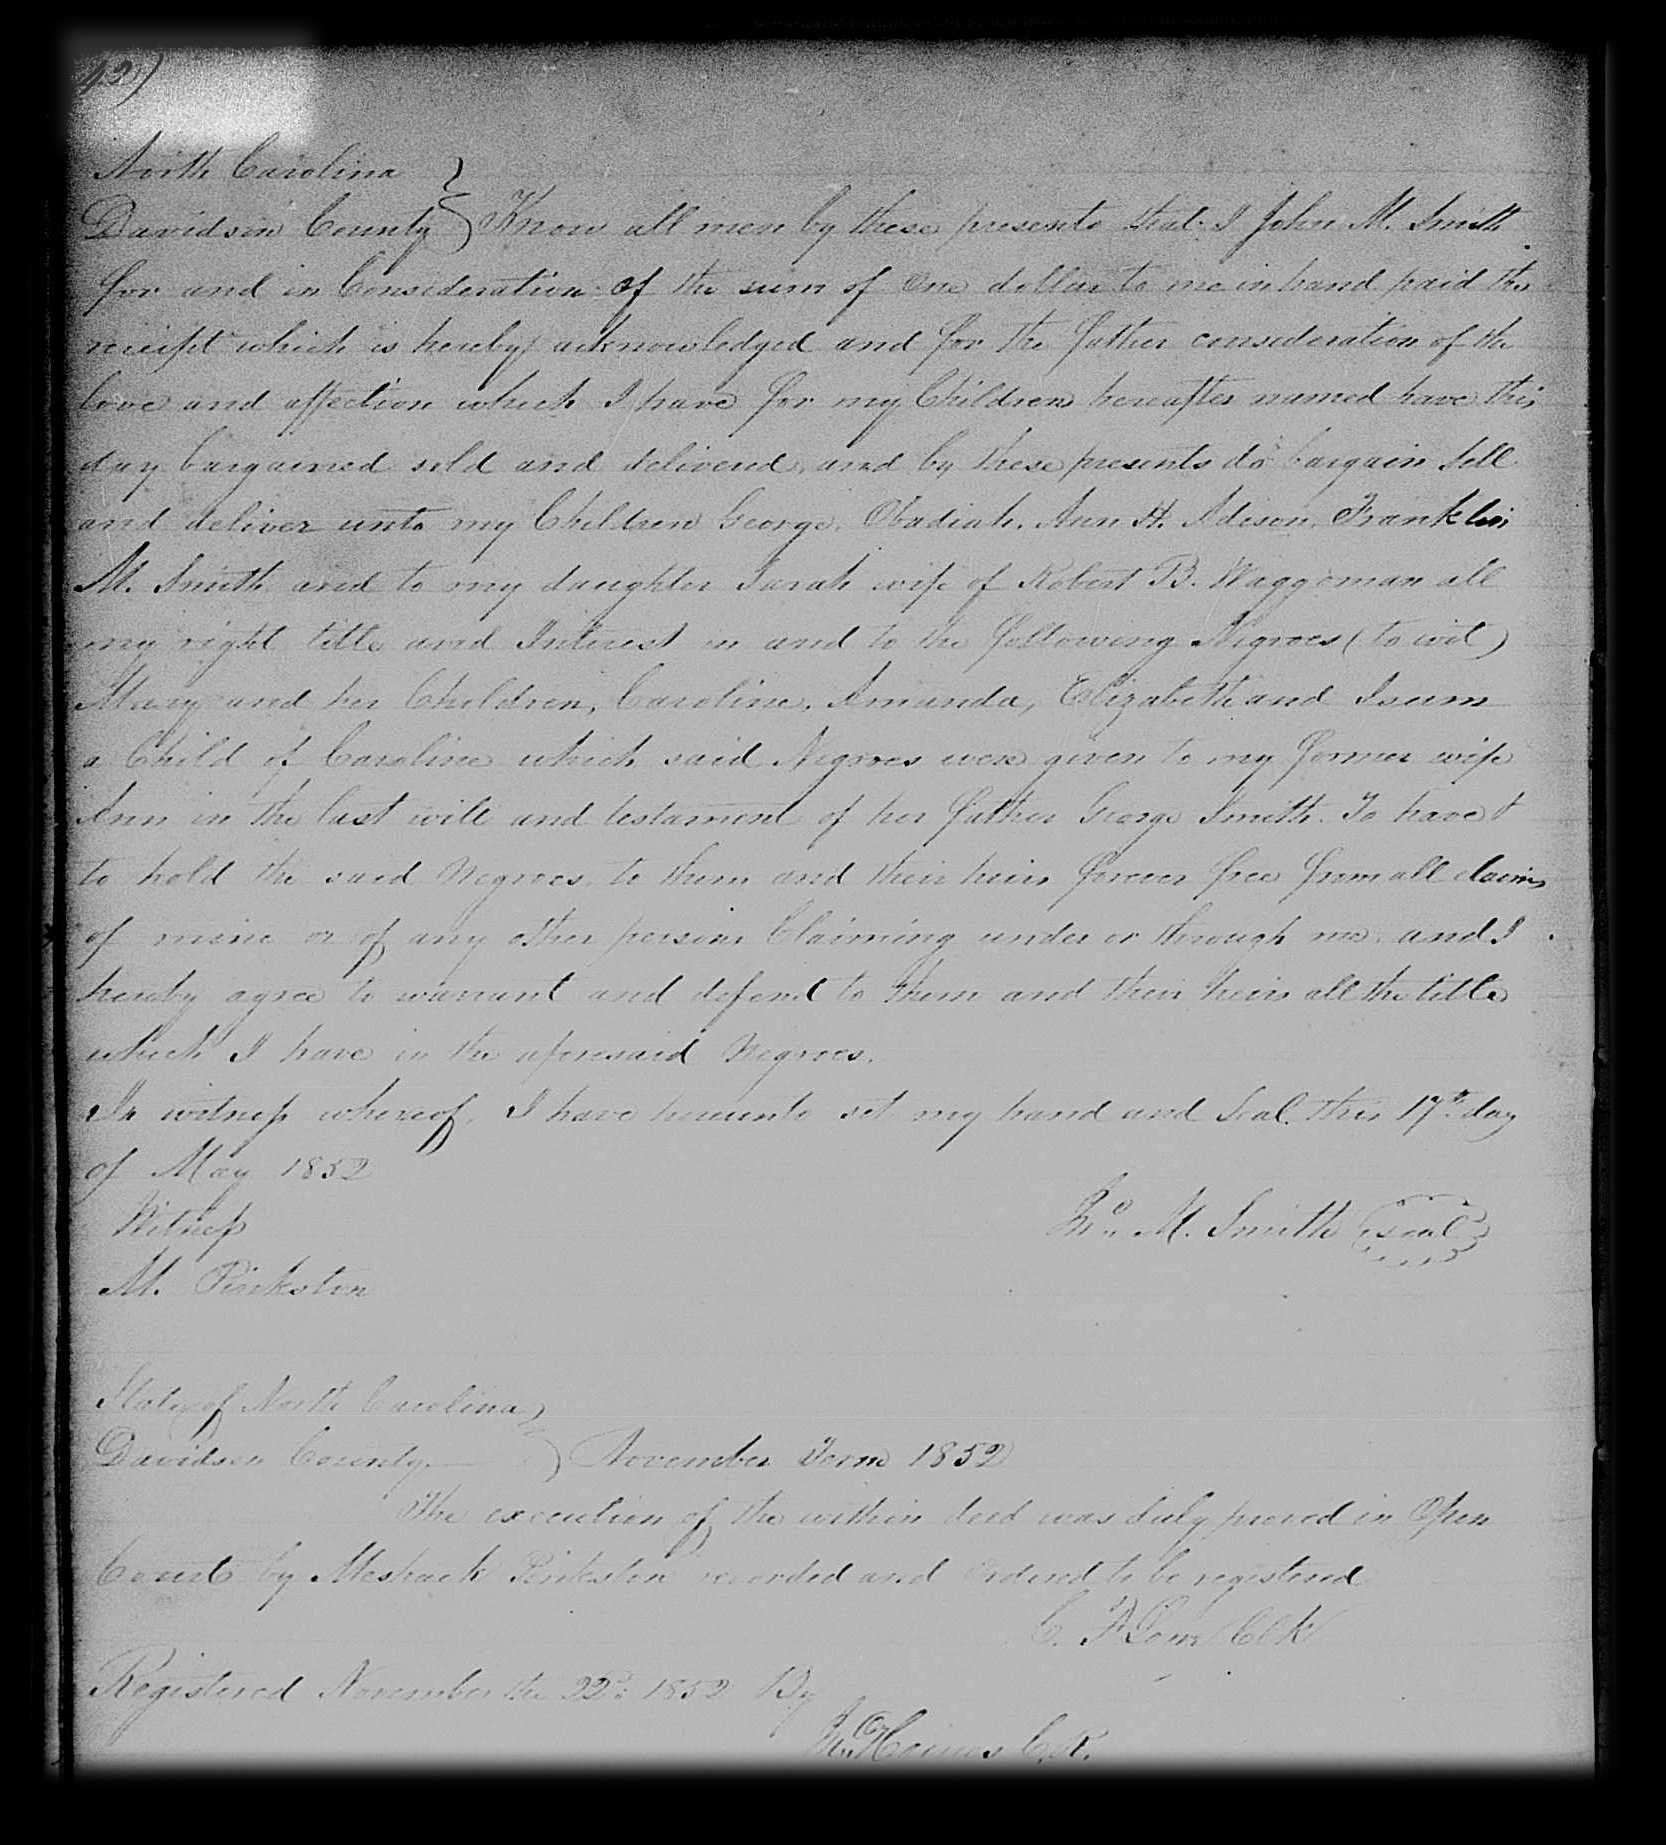 42)
North Carolina
Davidson County } Know all men by these presents that I John M. Smith
for and in Consideration of the sum of One dollar to me in hand paid the
reciept which is hereby acknowledged and for the futher consideration of the
love and affection which I have for my Children hereafter named have this
day bargained sold and delivered, and by these presents do bargain Sell
and deliver unto my Children George, Obadiah, Ann H. Adison, Franklin
M. Smith and to my daughter Sarah wife of Robert B. Waggoman all
my right title and Interest in and to the following Negroes (to wit)
Mary and her Children, Caroline, Amanda, Elizabeth and Isum
a Child of Caroline which said Negroes were given to my former wife
Ann in the last will and testament of her father George Smith. To have &
to hold the said Negroes to them and their heirs forever free from all claims
of mine or of any other person Claiming under or through me. and I
hereby agree to warrant and defend to them and their heirs all the title
which I have in the aforesaid Negroes.
In witness whereof, I have hereunto set my hand and Seal. this 17th day
of May 1852
Witness
Jno. M. Smith (seal)
M. Pinkston
State of North Carolina
Davidson County } November Term 1852
The execution of the within deed was duly proved in Open
Court by Meshack Pinkston recorded and Ordered to be registered
C. F Low Clk
Registered November the 22d. 1852 By
Jno. Haines C.R.